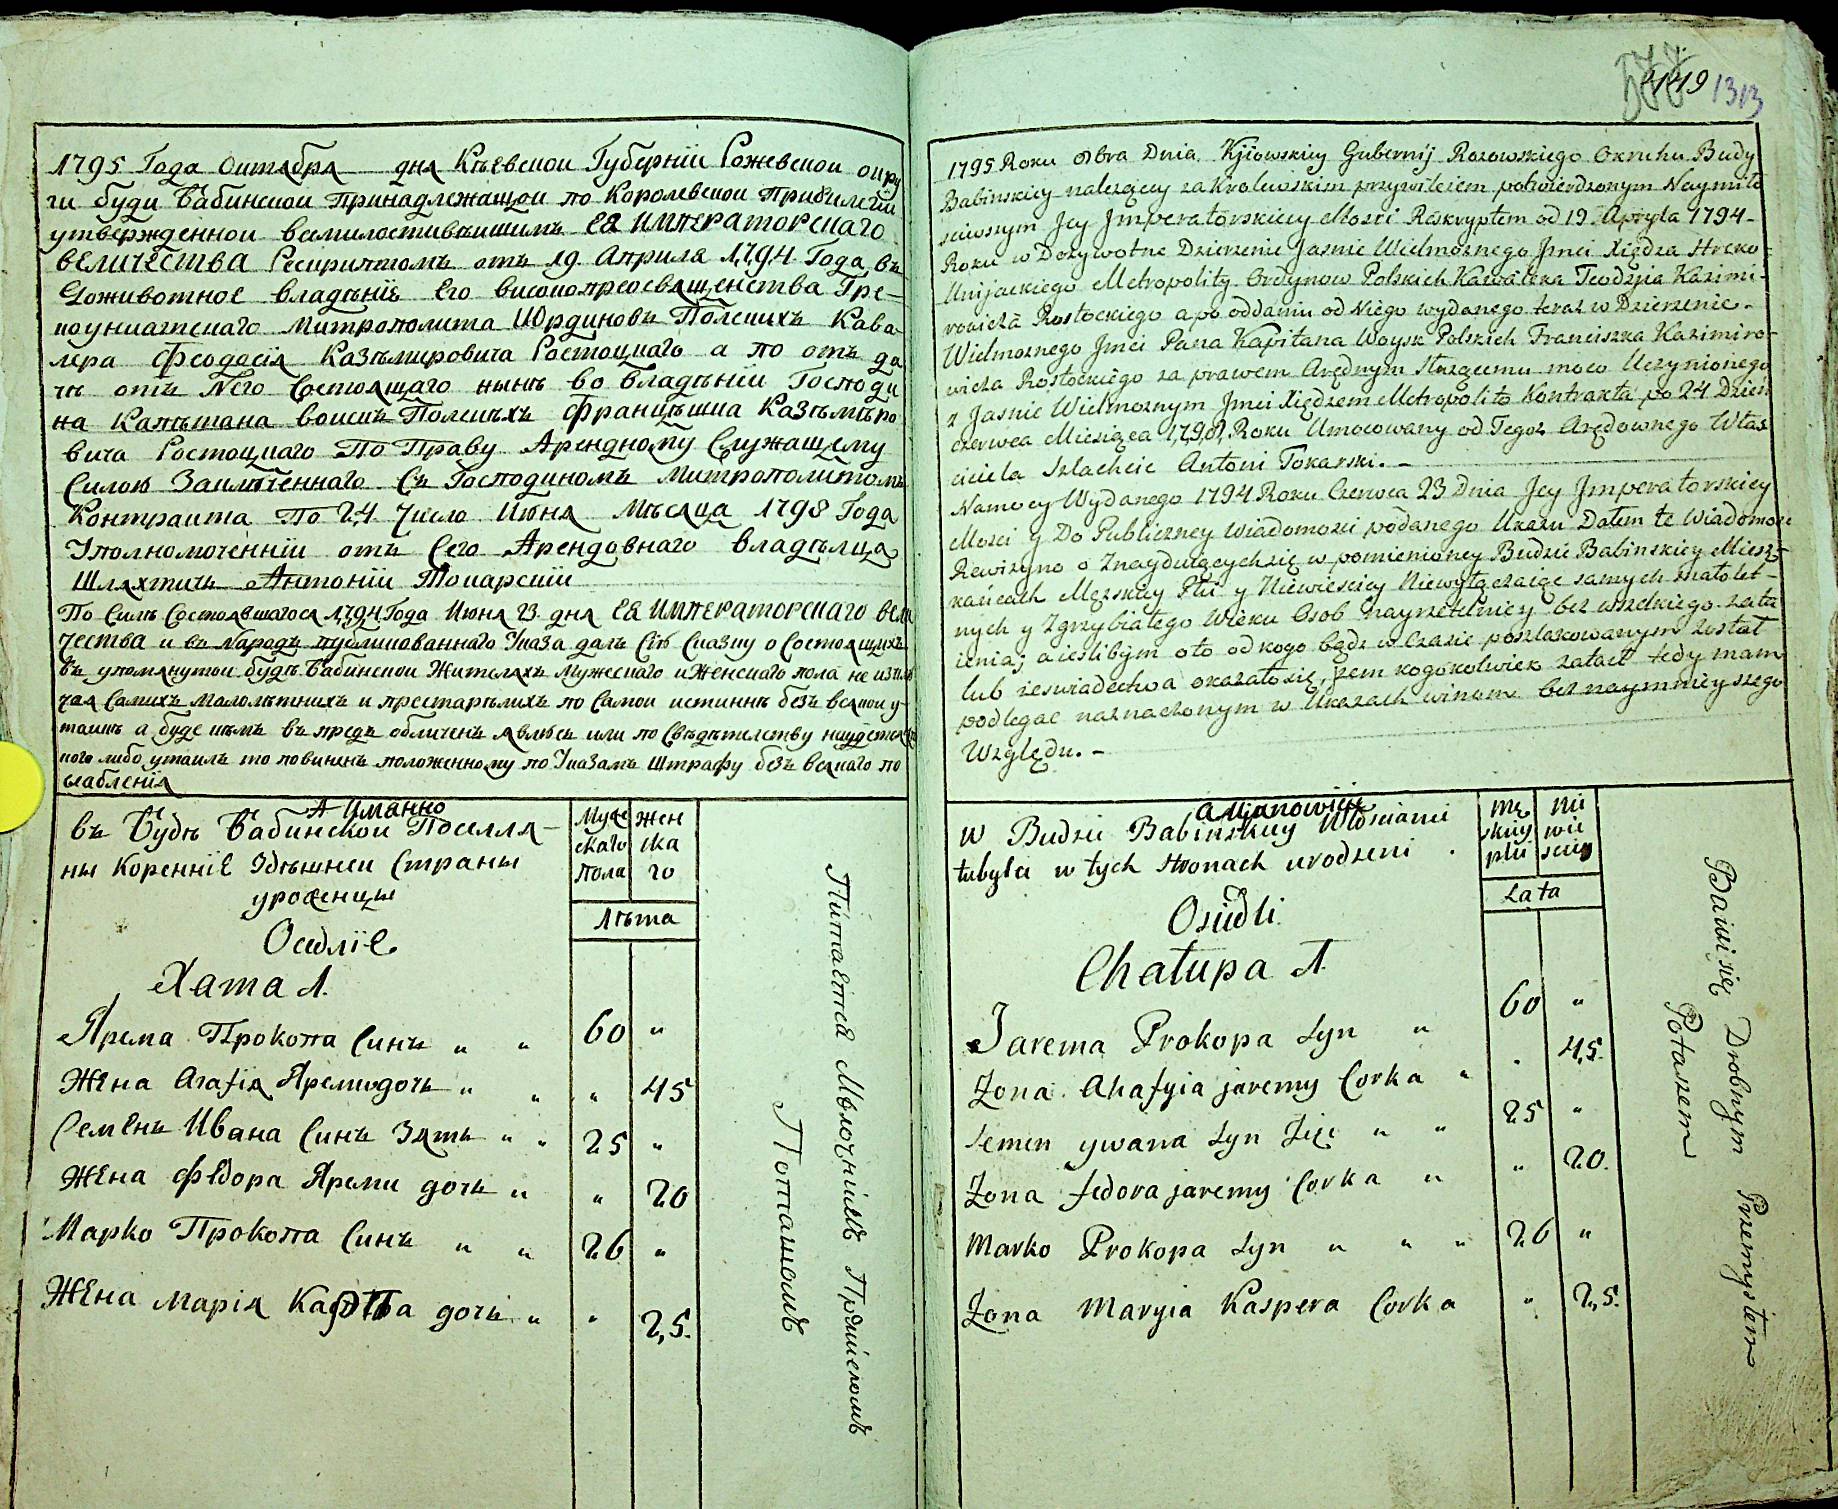 1795 Года Октября дня Кіевской Губерніи Рожевской окру
ги буди Бабинской принадлежащой по Королевской привилегіи
утвержденной всемилостивѣишимъ Ея ИМПЕРАТОРСКАГО
ВЕЛИЧЕСТВА Рескриптомъ отъ 19 Априля 1794 Года въ
Доживотное владѣніе Его високопреосвященства Гре-
коуниатскаго Митрополита Юрдиновъ Полскихъ Кава
лера Феодосія Казѣмировича Ростоцкаго а по отъ да
чѣ отъ Него Состоящаго нынѣ во владѣніи Господи
на Капѣтана воискъ Полскѣхъ Францѣшка Казѣмѣро
вича Ростоцкаго По Праву Арендному Служащему
Силою Заключеннаго Съ Господиномъ Митрополитомъ
Контракта По 24 Число Июня Мѣсяца 1798 Года
Уполномоченніи отъ Сего Арендовнаго владѣлца
Шляхтичъ Антоніи Токарскіи
По Силѣ Состоявшагося 1794 Года Июня 23 дня Ея ИМПЕРАТОРСКАГО вели
чества и въ Народъ публикованнаго Указа далъ Сію Сказку о Состоящихъ
въ упомянутой будѣ Бабинской Жителяхъ Мужескаго и Женскаго пола не изклю
чая Самихъ Малолѣтнихъ и престарѣлихъ по Самой истиннѣ безъ всякой у-
тайки а буде кѣмъ въ предъ обличенъ явлюсъ или по Свѣдѣтелству найдется
кого либо утаилъ то повиненъ положенному по Указамъ Штрафу безъ всякаго по
слабленія
А Иманно
въ Будѣ Бабинской Поселля-
ны Коренніе Здѣшнеи Страны
уроженцы
Муже
скаго
пола
жен
ска
го
Лѣта
Оседліе
Хата 1.
Ярема Прокопа Синъ „ „ 60 „
Жена Агафія Яреми дочь „ „ „ 45
Семенъ Ивана Синъ Зять „ „ 25 „
Жена Федора Яреми дочь „ „ 20
Марко Прокопа Синъ „ „ 26 „
Жена Марія Карпа дочь „ „ 25.
Питается Мѣлочнімъ Промисломъ
Поташомъ
449 1313
1795 Roku 8bra Dnia Kjiowskiey Gubernij Rozowskiego Okruhu Budy
Babinskiey nalezącey za Krolewskim przywileiem potwierdzonym Naymiło
sciwszym Jey Jmperatorskieiy Mosci Reskryptem od 19 Apryla 1794-
Roku w Dozywotne Dzierzenie Jasnie Wielmoznego Jmci Xiędza Hreko-
Unijackiego Metropolity Ordynow Polskich Kawalera Teodozja Kazimi-
rowicza Rostockiego a po oddaniu od Niego wydanego teraz w Dzierzenie-
Wielmoznego Jmci Pana Kapitana Woysk Polskich Franciszka Kazimiro-
wicza Rostockiego za prawem Arędnym Służącemu moco Uczynionego
z Jasnie Wielmoznym Jmci Xiędzem Metropolito Kontrakta po 24 Dzien
Czerwca Miesiąca 1798 Roku Umocowany od Tegoz Arędownego Włas
ciciela Szlachcic Antoni Tokarski.-
Namocy Wydanego 1794 Roku Czerwca 23 Dnia Jey Jmperatorskiey
Mosci y Do Publiczney wiadomosci podanego Ukazu Dałem te Wiadomosc
Rewizyino o Znayduiącychsię w pomienioney Budzie Babinskiey Miesz-
kańcach Męzskiey Płci y Niewiesciey Niewyłączaiąc samych małolet-
nych y Zgrzybiałego Wieku Osob nayrzetelniey bez wszelkiego zata
ienia; a ieslibym oto od kogo bądz w czasie poszlakowanym został
lub zeswiadectwa okazałosię, zem kogokolwiek zataił tedy mam
podlegac naznaczonym w Ukazach winom bez naymnieyszego
Względu.-
a Mianowicie
w Budzie Babinskiey Włoscianie
tubylci w tych stronach urodzeni.
Mę
skiey
płci
Nie
wie
sciey
Lata
Osiedli
Chałupa 1.
Jarema Prokopa Syn „ 60 „
Zona Ahafyia jaremy Corka „ „ 45.
Semen ywana Syn Zięc „ „ 25 „
Zona fedora jaremy Corka „ „ 20.
Marko Prokopa Syn „ „ „ 26 „
Zona Maryia Kaspera Corka „ 25.
Bawi się Drobnym Przemysłem
Potaszem